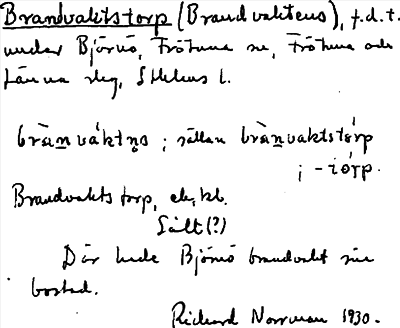 Brandvaktstorp (Brandvaktens), f.d.t.
under Björnö, Frötuna sn, Frötuna och
Länna slg, Sthlms l.
brànvàktn̥s ; sällan brànvaktstórp
; -tórp.
Brandvakts torp, ek. kb.
Sålt (?)
Där hade Björnö brandvakt sin
bostad.
Richard Norrman 1930.